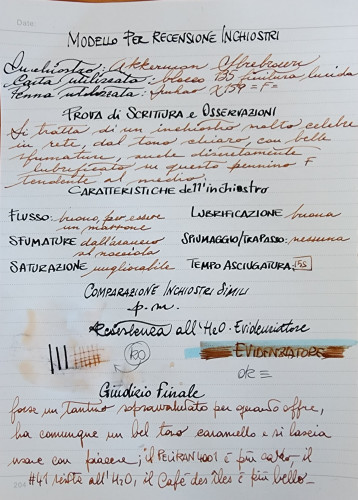 Date
MODELLO PER RECENSIONE INCHIOSTRI
Inchiostro: Akkerman Oftebrown
Carta utilizzata: blocco BS finitura lucida
Penna utilizzata: Jinhao X159 =F=
PROVA di SCRITTURA e OSSERVAZIONI
Si tratta di un inchiostro molto celebre
in rete, dal tono chiaro, con belle
sfumature, anche discretamente
lubrificato in questo pennino F
tendente al medio.
CARATTERISTICHE dell'inchiostro
FLUSSO: buono, per essere LUBRIFICAZIONE buona
un marrone
SFUMATURE dall'arancio SPIUMAGGIO/TRAPASSO: nessuna
al nocciola
SATURAZIONE migliorabile TEMPO ASCIUGATURA: 15s
COMPARAZIONE INCHIOSTRI SIMILI
p.m.
Resistenza all'H2O - Evidenziatore
KO EVIDENZIATORE
ok =
Giudizio Finale
forse un tantino sopravvalutato per quanto offre,
ha comunque un bel tono caramello e si lascia
usare con piacere; il PELIKAN 4001 è più caldo, il
#41 resiste all'H2O, il Café des îles è più bello_